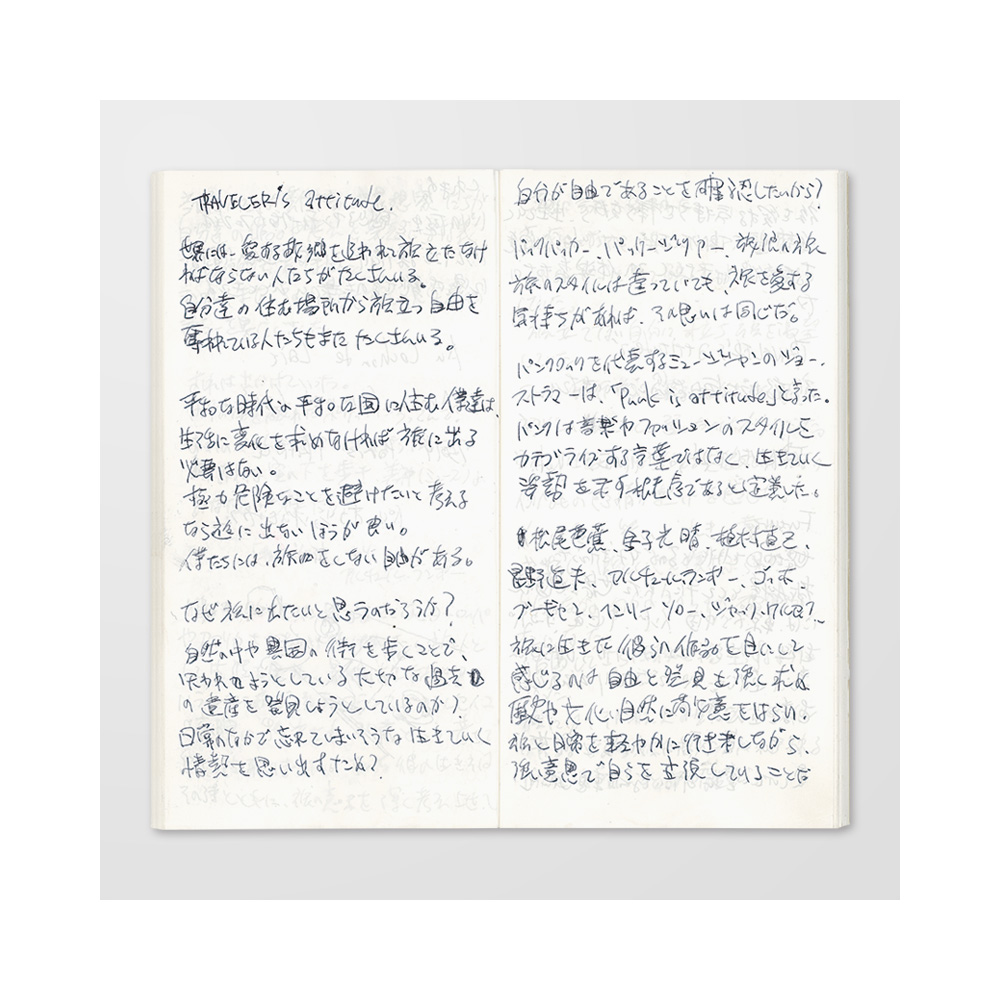 TRAVELER's attitude.
世界には、愛する故郷を追われて旅立たなけ
ればならない人たちがたくさんいる。
自分達の住む場所から旅立つ自由を
奪われている人たちもまたたくさんいる。
平和な時代の平和な国に住む僕達は、
生活に変化を求めなければ旅に出る
必要はない。
極力危険なことを避けたいと考える
なら旅に出ないほうが良い。
僕たちには、旅をしない自由がある。
なぜ旅に出たいと思うのだろうか?
自然の中や異国の街を歩くことで、
失われようとしている大切な過去
の遺産を発見しようとしているのか?
日常のなかで忘れてしまいそうな生きていく
情熱を思い出すため?
自分が自由であることを確認したいから?
バックパッカー、パッケージツアー、放浪の旅
旅のスタイルは違っていても、旅を愛する
気持ちがあれば、その思いは同じだ。
パンクロックを代表するミュージシャンのジョー・
ストラマーは、「Punk is attitude」と言った。
パンクは音楽やファッションのスタイルを
カテゴライズする言葉ではなく、生きていく
姿勢を示す言葉であると定義した。
松尾芭蕉、金子光晴、植村直己、
星野道夫、アルチュール・ランボー、ゴッホ、
ゴーギャン、ヘンリー・ソロー、ジャック・ケルアック…
旅に生きた彼らの作品を目にして
感じるのは自由と発見を強く求め
歴史や文化、自然に敬意をはらい、
旅と日常を軽やかに行き来しながら、
強い意思で自らを主張していることだ